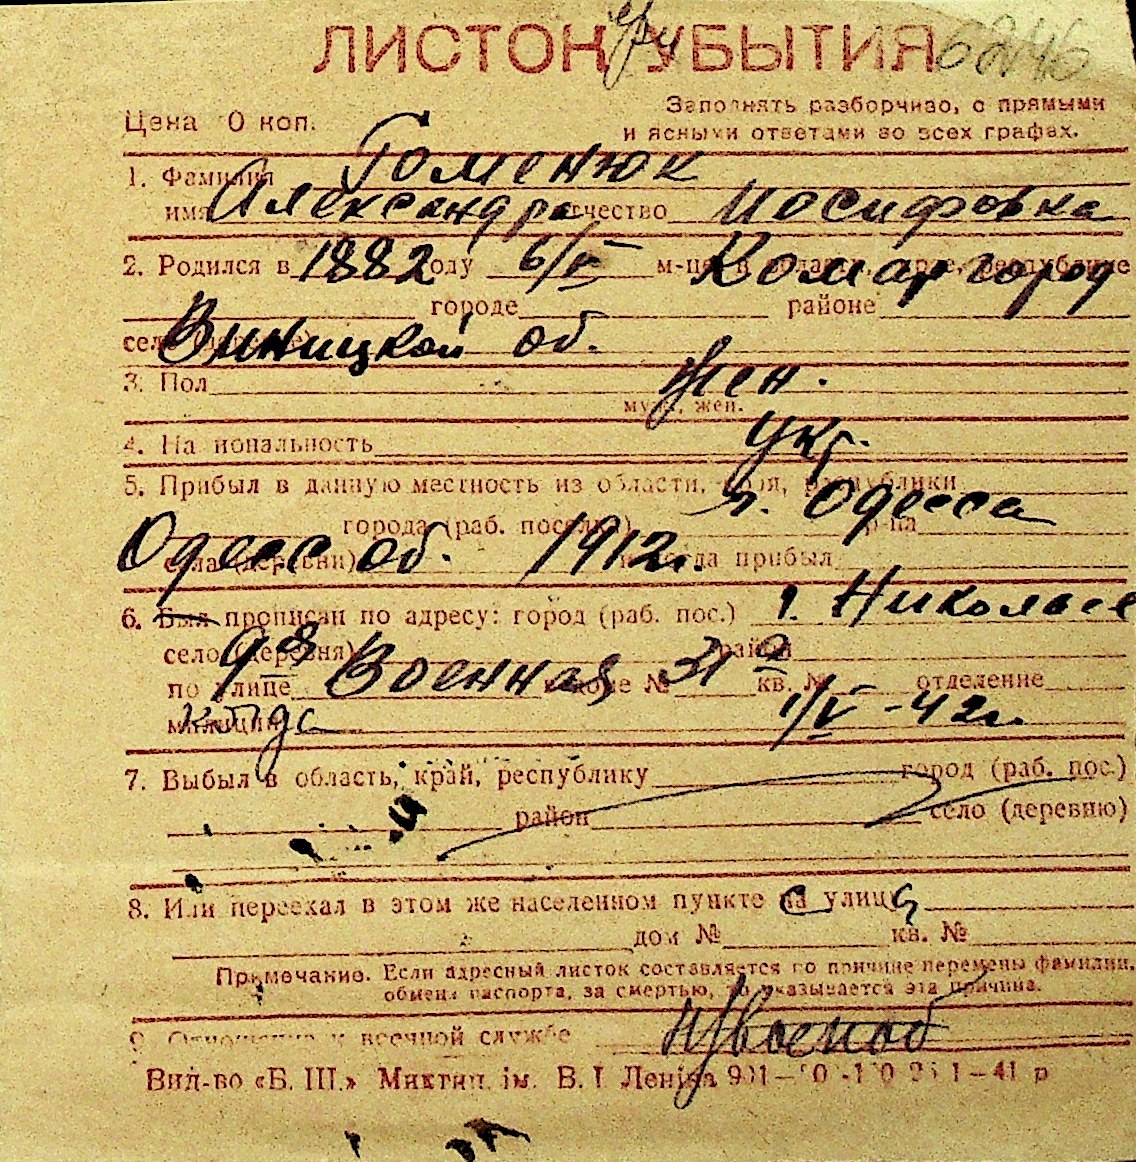 ЛИСТОК УБЫТИЯ 6246
Цена 10 коп. Заполнять разборчиво, с прямыми
и ясными ответами во всех графах.
1. Фамилия Гоменюк
имя Александра отчество Иосифовна
2. Родился в 1882 году 6/V м-це в области, крае, республике Комаргород
городе районе
село (деревне) Виницкой об.
3. Пол жен.
муж., жен.
4. Национальность укр.
5. Прибыл в данную местность из области, края, республики
города (раб. поселка) г. Одесса р-на
села (деревни) Одесс об. 1912г. и когда прибыл
6. Был прописан по адресу: город (раб. пос.) г. Николаев
село (деревня) район
по улице 9я Военная в доме № 31 кв. № 2 отделение
милиции 1/V-42г.
7. Выбыл в область, край, республику город (раб. пос.)
район село (деревню)
8. Или переехал в этом же населенном пункте на улицу
дом № кв. №
Примечание. Если адресный листок составляется по причине перемены фамилии,
обмена паспорта, за смертью, то указывается эта причина.
9. Отношение к военной службе н/военоб
Вид-во «Б. Ш.» Миктип. ім. В. І. Леніна